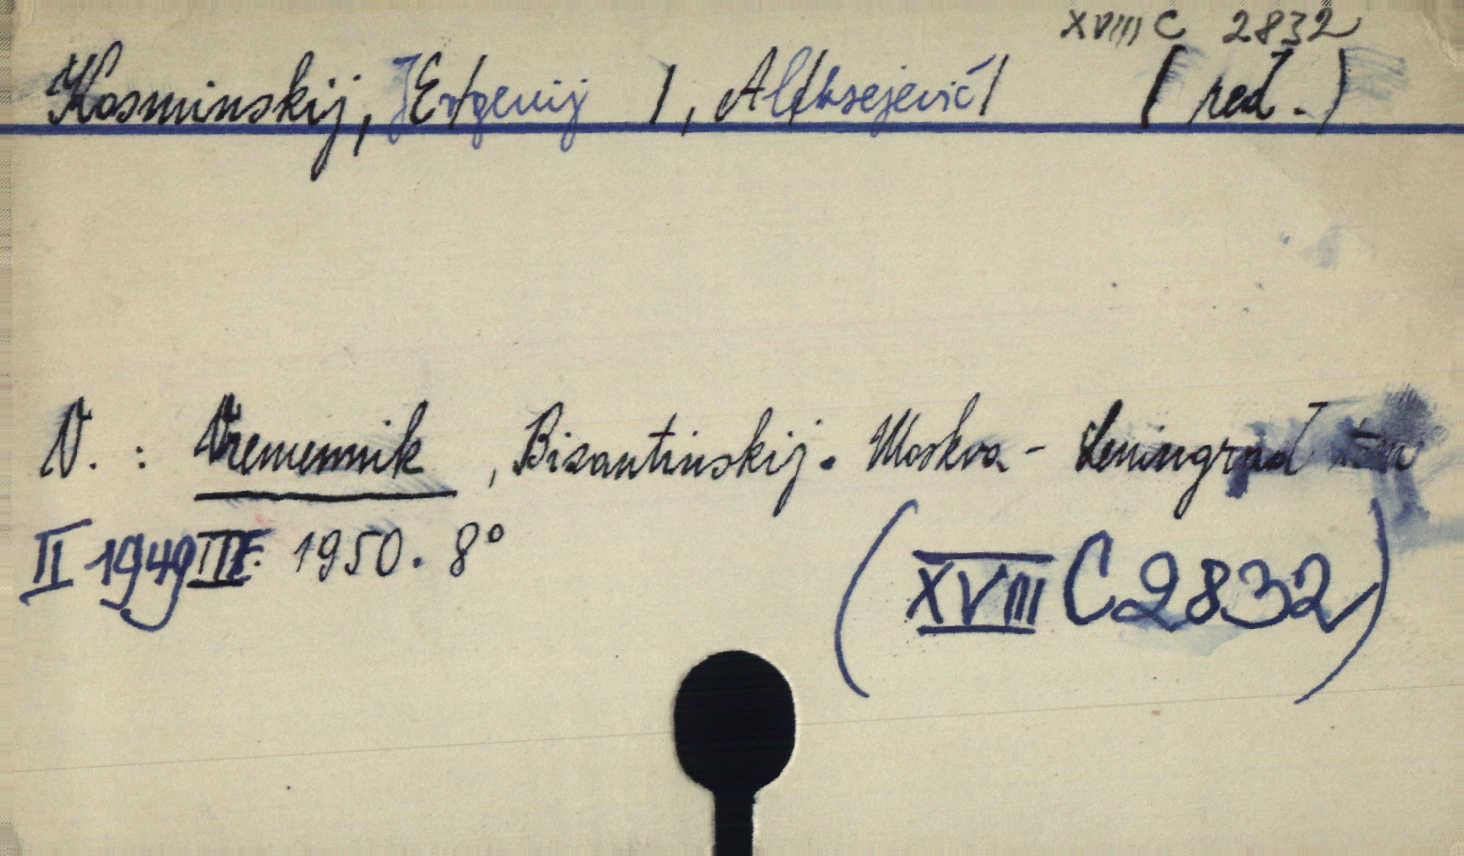 XVIII C 2832
Kosminskij, [E/vgenij /, Al/eksejevič/ (red.)
V. : Vremennik, Bizantinskij. Moskva - Leningrad
II 1949 III. 1950. 8°
(XVIII C 2832)